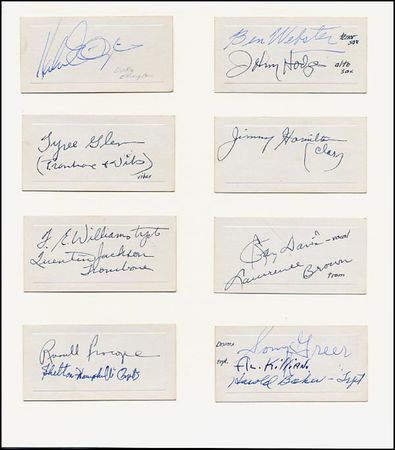 Duke Ellington
Ben Webster tenor sax
Johny Hodge alto sax
Tyree Glenn
(Trombone & Vibs)
vibes
Jimmy Hamilton
(Clar)
F. E. Williams tpt
Quentin Jackson
Trombone
Kay Davis - vocal
Lawrence Brown
trom
Russell Procope
Shelton Hemphill (Tpt)
Drums Sonny Greer
trpt. AL. Killian.
Harold Baker - Tpt